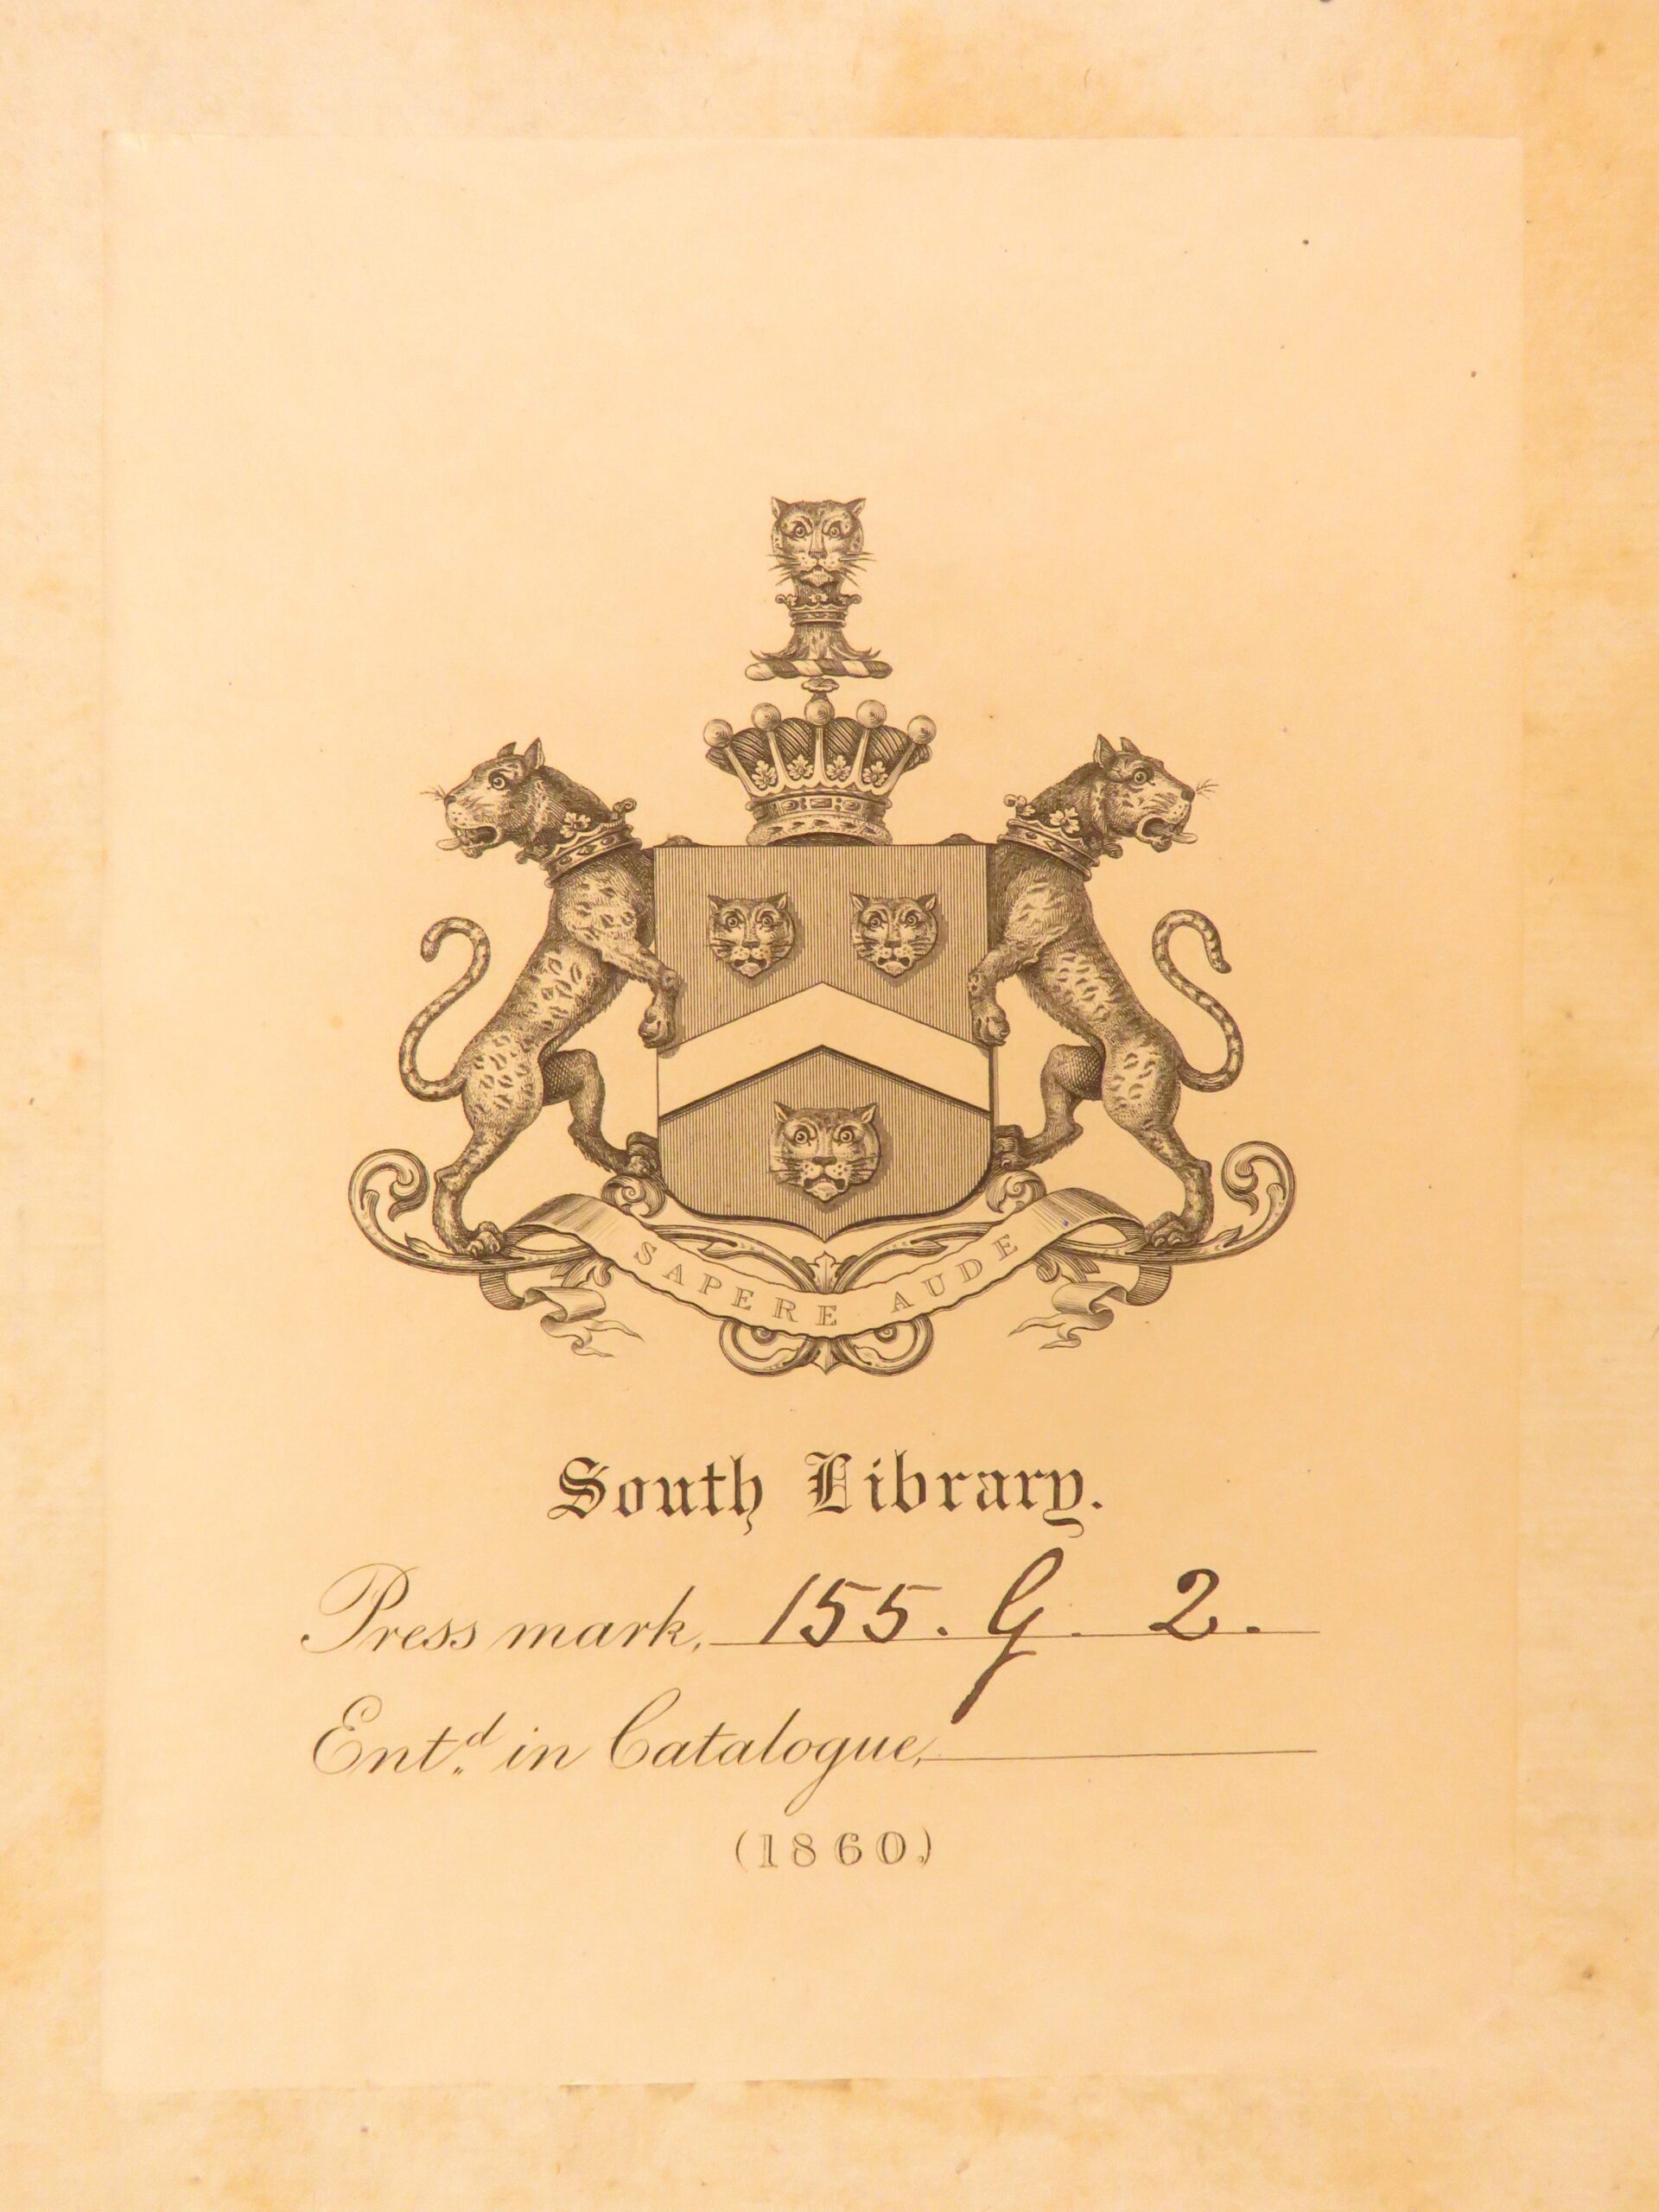 SAPERE AUDE
South Library.
Press mark, 155. G. 2.
Ent.d in Catalogue,
(1860)